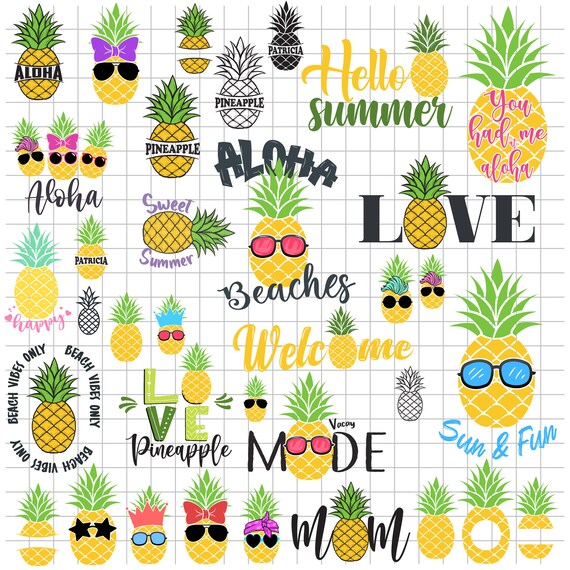 ALOHA
PATRICIA
PINEAPPLE
Hello
summer
PINEAPPLE
You
had me
at
aloha
Aloha
ALOHA
Beaches
Sweet
Summer
LOVE
PATRICIA
happy
Welcome
BEACH VIBES ONLY
BEACH VIBES ONLY
BEACH VIBES ONLY
LO
VE
Pineapple
Vacay
MODE
Sun & Fun
MOM